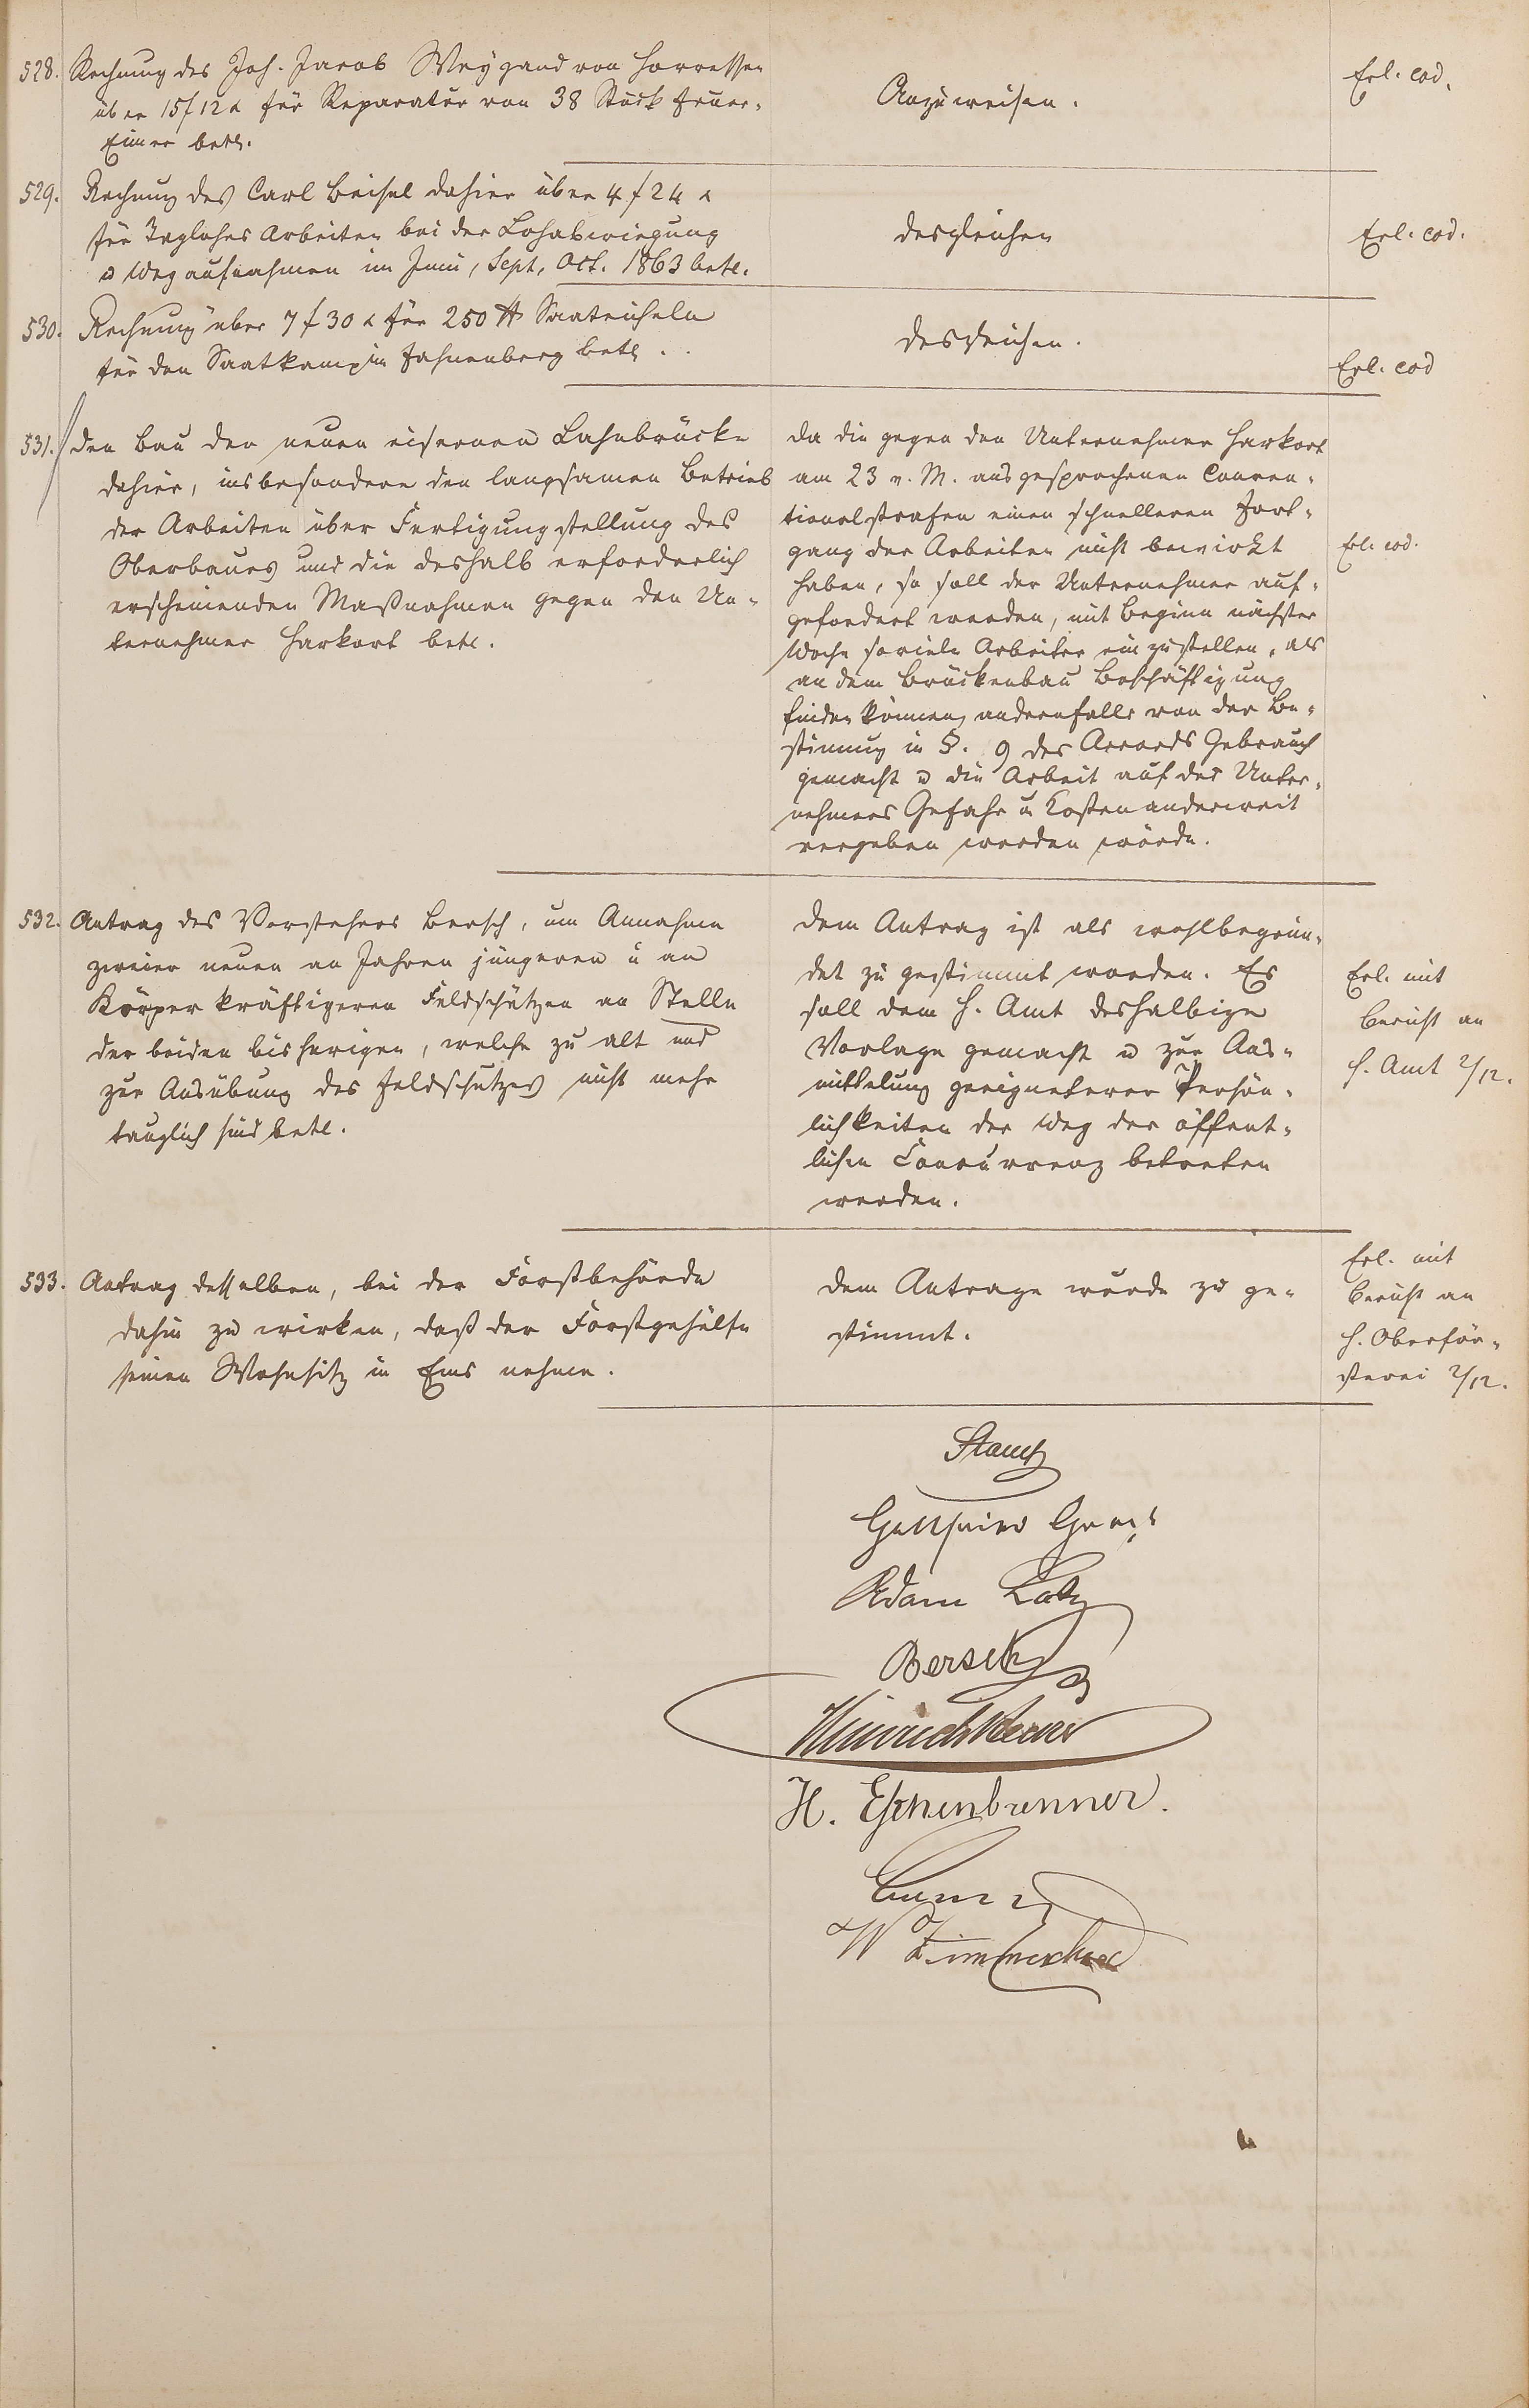 528. Rechnung des Joh. Jacob Weygand von Horressen
über 15 f 12 x für Reparatur von 38 Stück Feuer-
Eimer betr.
Anzuweisen.
Erl. eod.
529. Rechnung des Carl Beisel dahier über 4 f 24 x
für Taglohns Arbeiten bei der Lohabwiegung
u Wegaufnahmen im Juni, Sept, Oct. 1863 betr.
desgleichen
Erl. eod.
530. Rechnung über 7 f 30 x für 250 ℔ Saateicheln
für den Saatkamp im Fahnenberg betr.
desgleichen.
Erl. eod
531. Den Bau der neuen eisernen Lahnbrücke
dahier, insbesondere den langsamen Betrieb
der Arbeiten über Fertigungstellung des
Oberbaues und die deshalb erforderlich
erscheinenden Maßnahmen gegen den Un-
ternehmer Harkort betr.
Da die gegen den Unternehmer Harkort
am 23 v. M. ausgesprochenen Conven-
tionalstrafen einen schnelleren Fort-
gang der Arbeiten nicht bewirkt
haben, so soll der Unternehmer auf-
gefordert werden, mit Beginn nächster
Woche soviele Arbeiter einzustellen, als
an dem Brückenbau Beschäftigung
finden können, andernfalls von der Be-
stimmug in §. 9 des Accords Gebrauch
gemacht u die Arbeit auf des Unter-
nehmers Gefahr u Kosten anderweit
vergeben werden würde.
Erl. eod.
532. Antrag des Vorstehers Bersch, um Annahme
zweier neuen an Jahren jüngeren u an
Körper kräftigeren Feldschützen an Stelle
der beiden bisherigen, welche zu alt und
zur Ausübung des Feldschutzes nicht mehr
tauglich sind betr.
Dem Antrag ist als wohlbegrün-
det zugestimmt worden. Es
soll dem H. Amt deshalbige
Vorlage gemacht u zur Aus-
mittelung geeigneterer Persön-
lichkeiten der Weg der öffent-
lichen Concurrenz betreten
werden.
Erl. mit
Bericht an
H. Amt 2/12.
533. Antrag desselben, bei der Forstbehörde
dahin zu wirken, daß der Forstgehülfe
seinen Wohnsitz in Ems nehme.
Dem Antrage wurde zu ge-
stimmt.
Erl. mit
Bericht an
H. Oberför-
sterei 2/12.
Gottfried
Adam Lotz
Bersch
Heinrich
H. Eschenbrenner.
W Zimmerschied